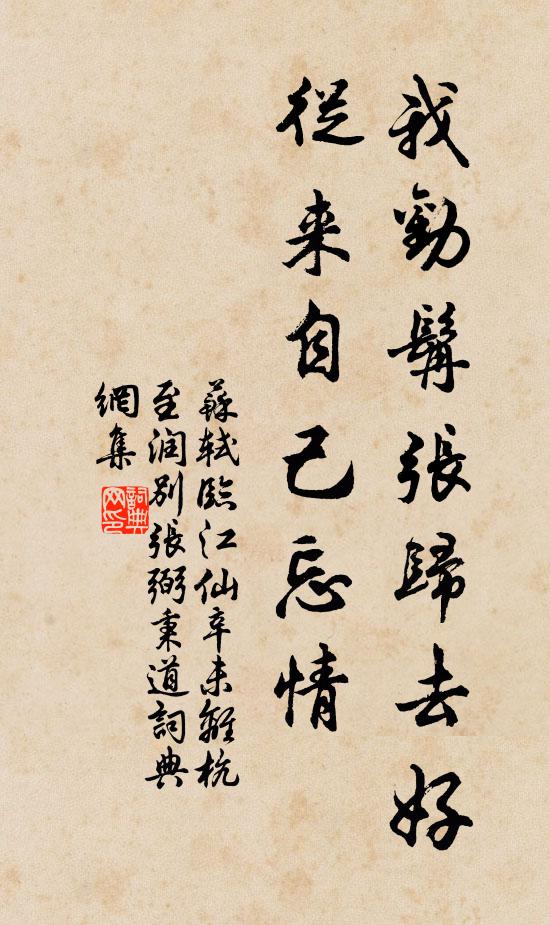 我勸髯張歸去好
從来自己忘情
蘇軾臨江仙辛未離杭
至润别張弼秉道詞典
網集
詞典
网印